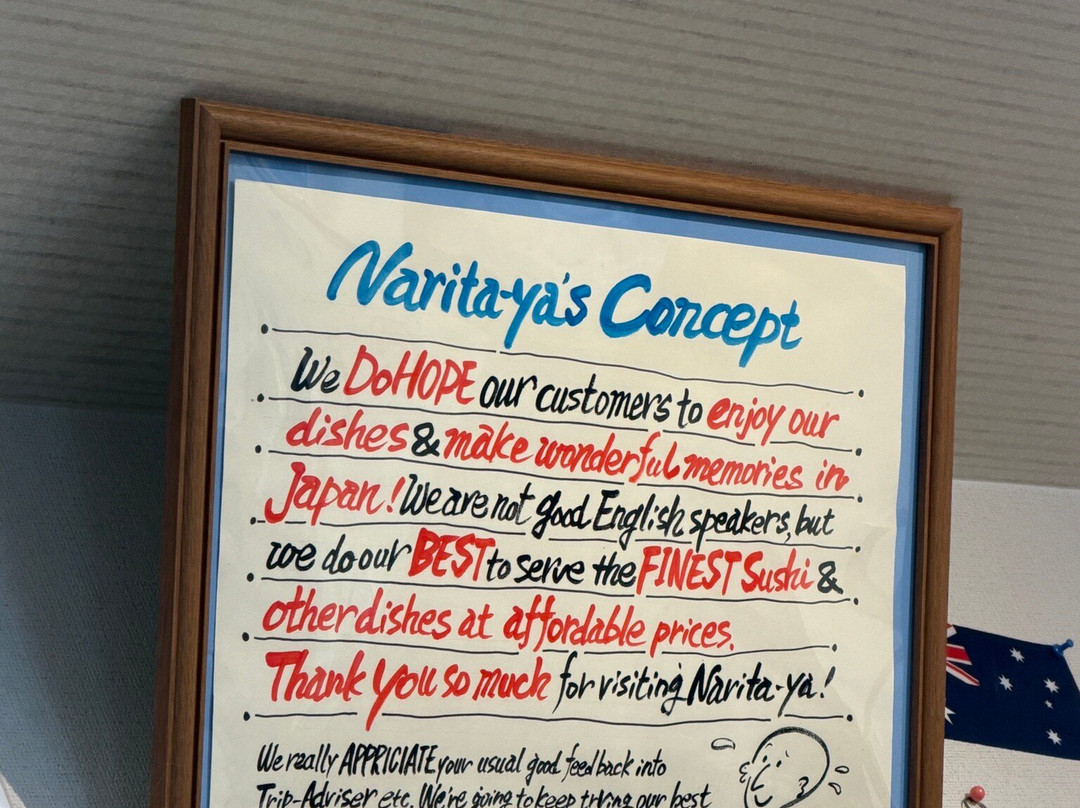 Narita-ya's Concept
We Do HOPE our customers to enjoy our
dishes & make wonderful memories in
Japan! We are not good English speakers, but
we do our BEST to serve the FINEST Sushi &
other dishes at affordable prices.
Thank you so much for visiting Narita-ya!
We really APPRICIATE your usual good feedback into
Trip-Adviser etc. We're going to keep trying our best